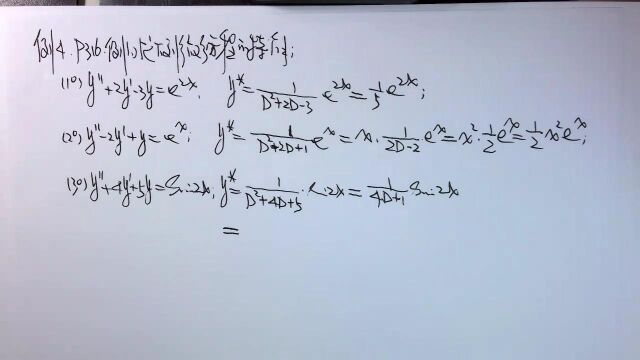 例4. P316. 例1, 求下列微分方程的特解;
(1°) y''+2y'-3y=e^{2x}, y*=\frac{1}{D²+2D-3}e^{2x}=\frac{1}{5}e^{2x};
(2°) y''-2y'+y=e^x; y*=\frac{1}{D²+2D+1}e^x=x·\frac{1}{2D-2}e^x=x²·\frac{1}{2}e^x=\frac{1}{2}x²e^x;
(3°) y''+4y'+5y=Sin2x, y*=\frac{1}{D²+4D+5}·Sin2x=\frac{1}{4D+1}Sin2x
=